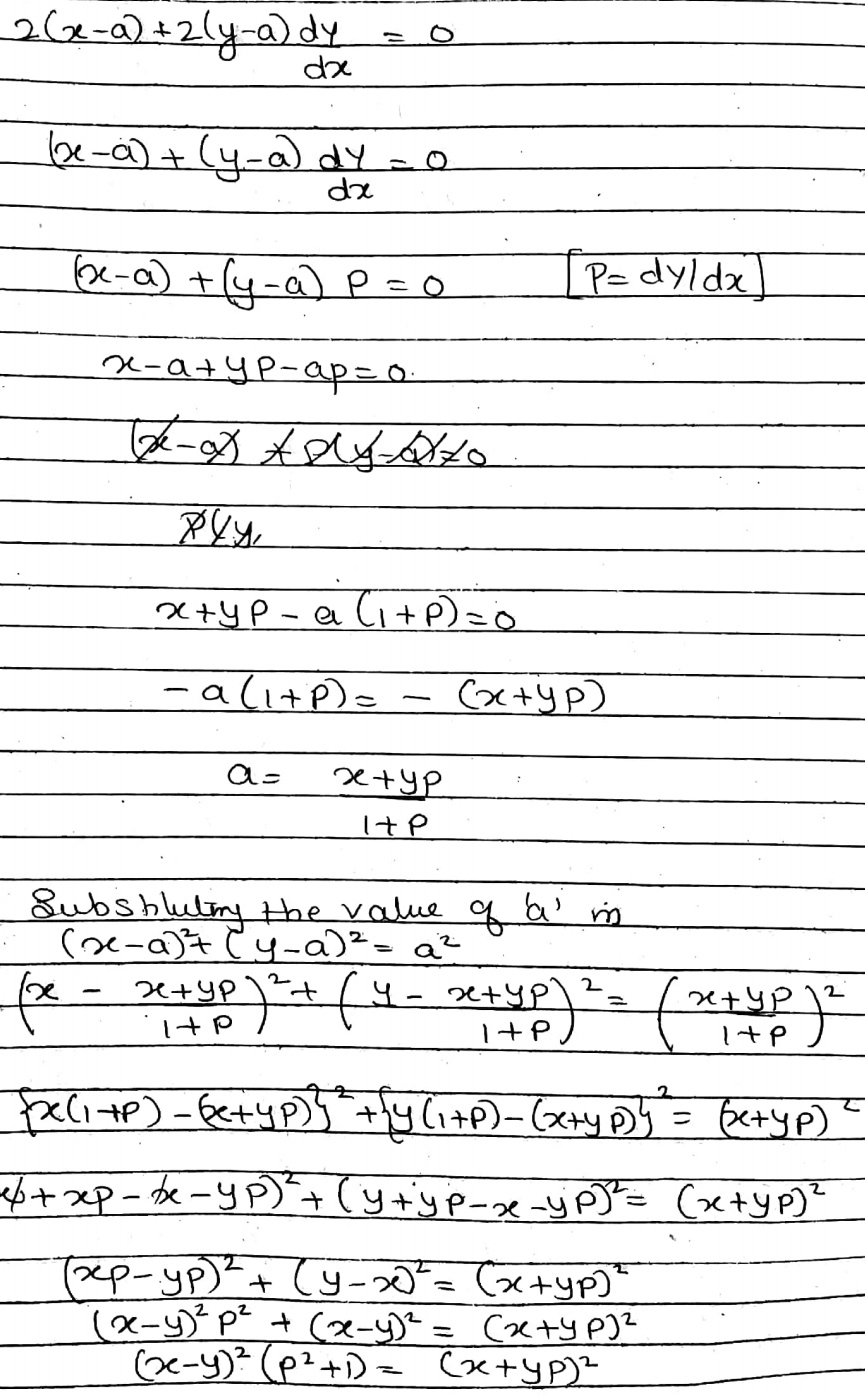 2(x-a)+2(y-a) dy/dx = 0
(x-a)+(y-a) dy/dx = 0
(x-a)+(y-a) P = 0 [P= dy/dx]
x-a+yP-ap=0.
x+yP-a(1+P)=0
-a(1+P)= -(x+yp)
a= x+yp/1+P
Substituting the value of 'a' in
(x-a)²+(y-a)²= a²
(x - x+yp/1+P)²+(y- x+yp/1+P)²=(x+yp/1+P)²
{x(1+P)-(x+yp)}²+{y(1+P)-(x+yp)}²= (x+yp)²
x+xp-x-yp)²+(y+yp-x-yp)²= (x+yp)²
(xp-yp)²+(y-x)²= (x+yp)²
(x-y)²p² + (x-y)² = (x+yp)²
(x-y)²(p²+1)= (x+yp)²